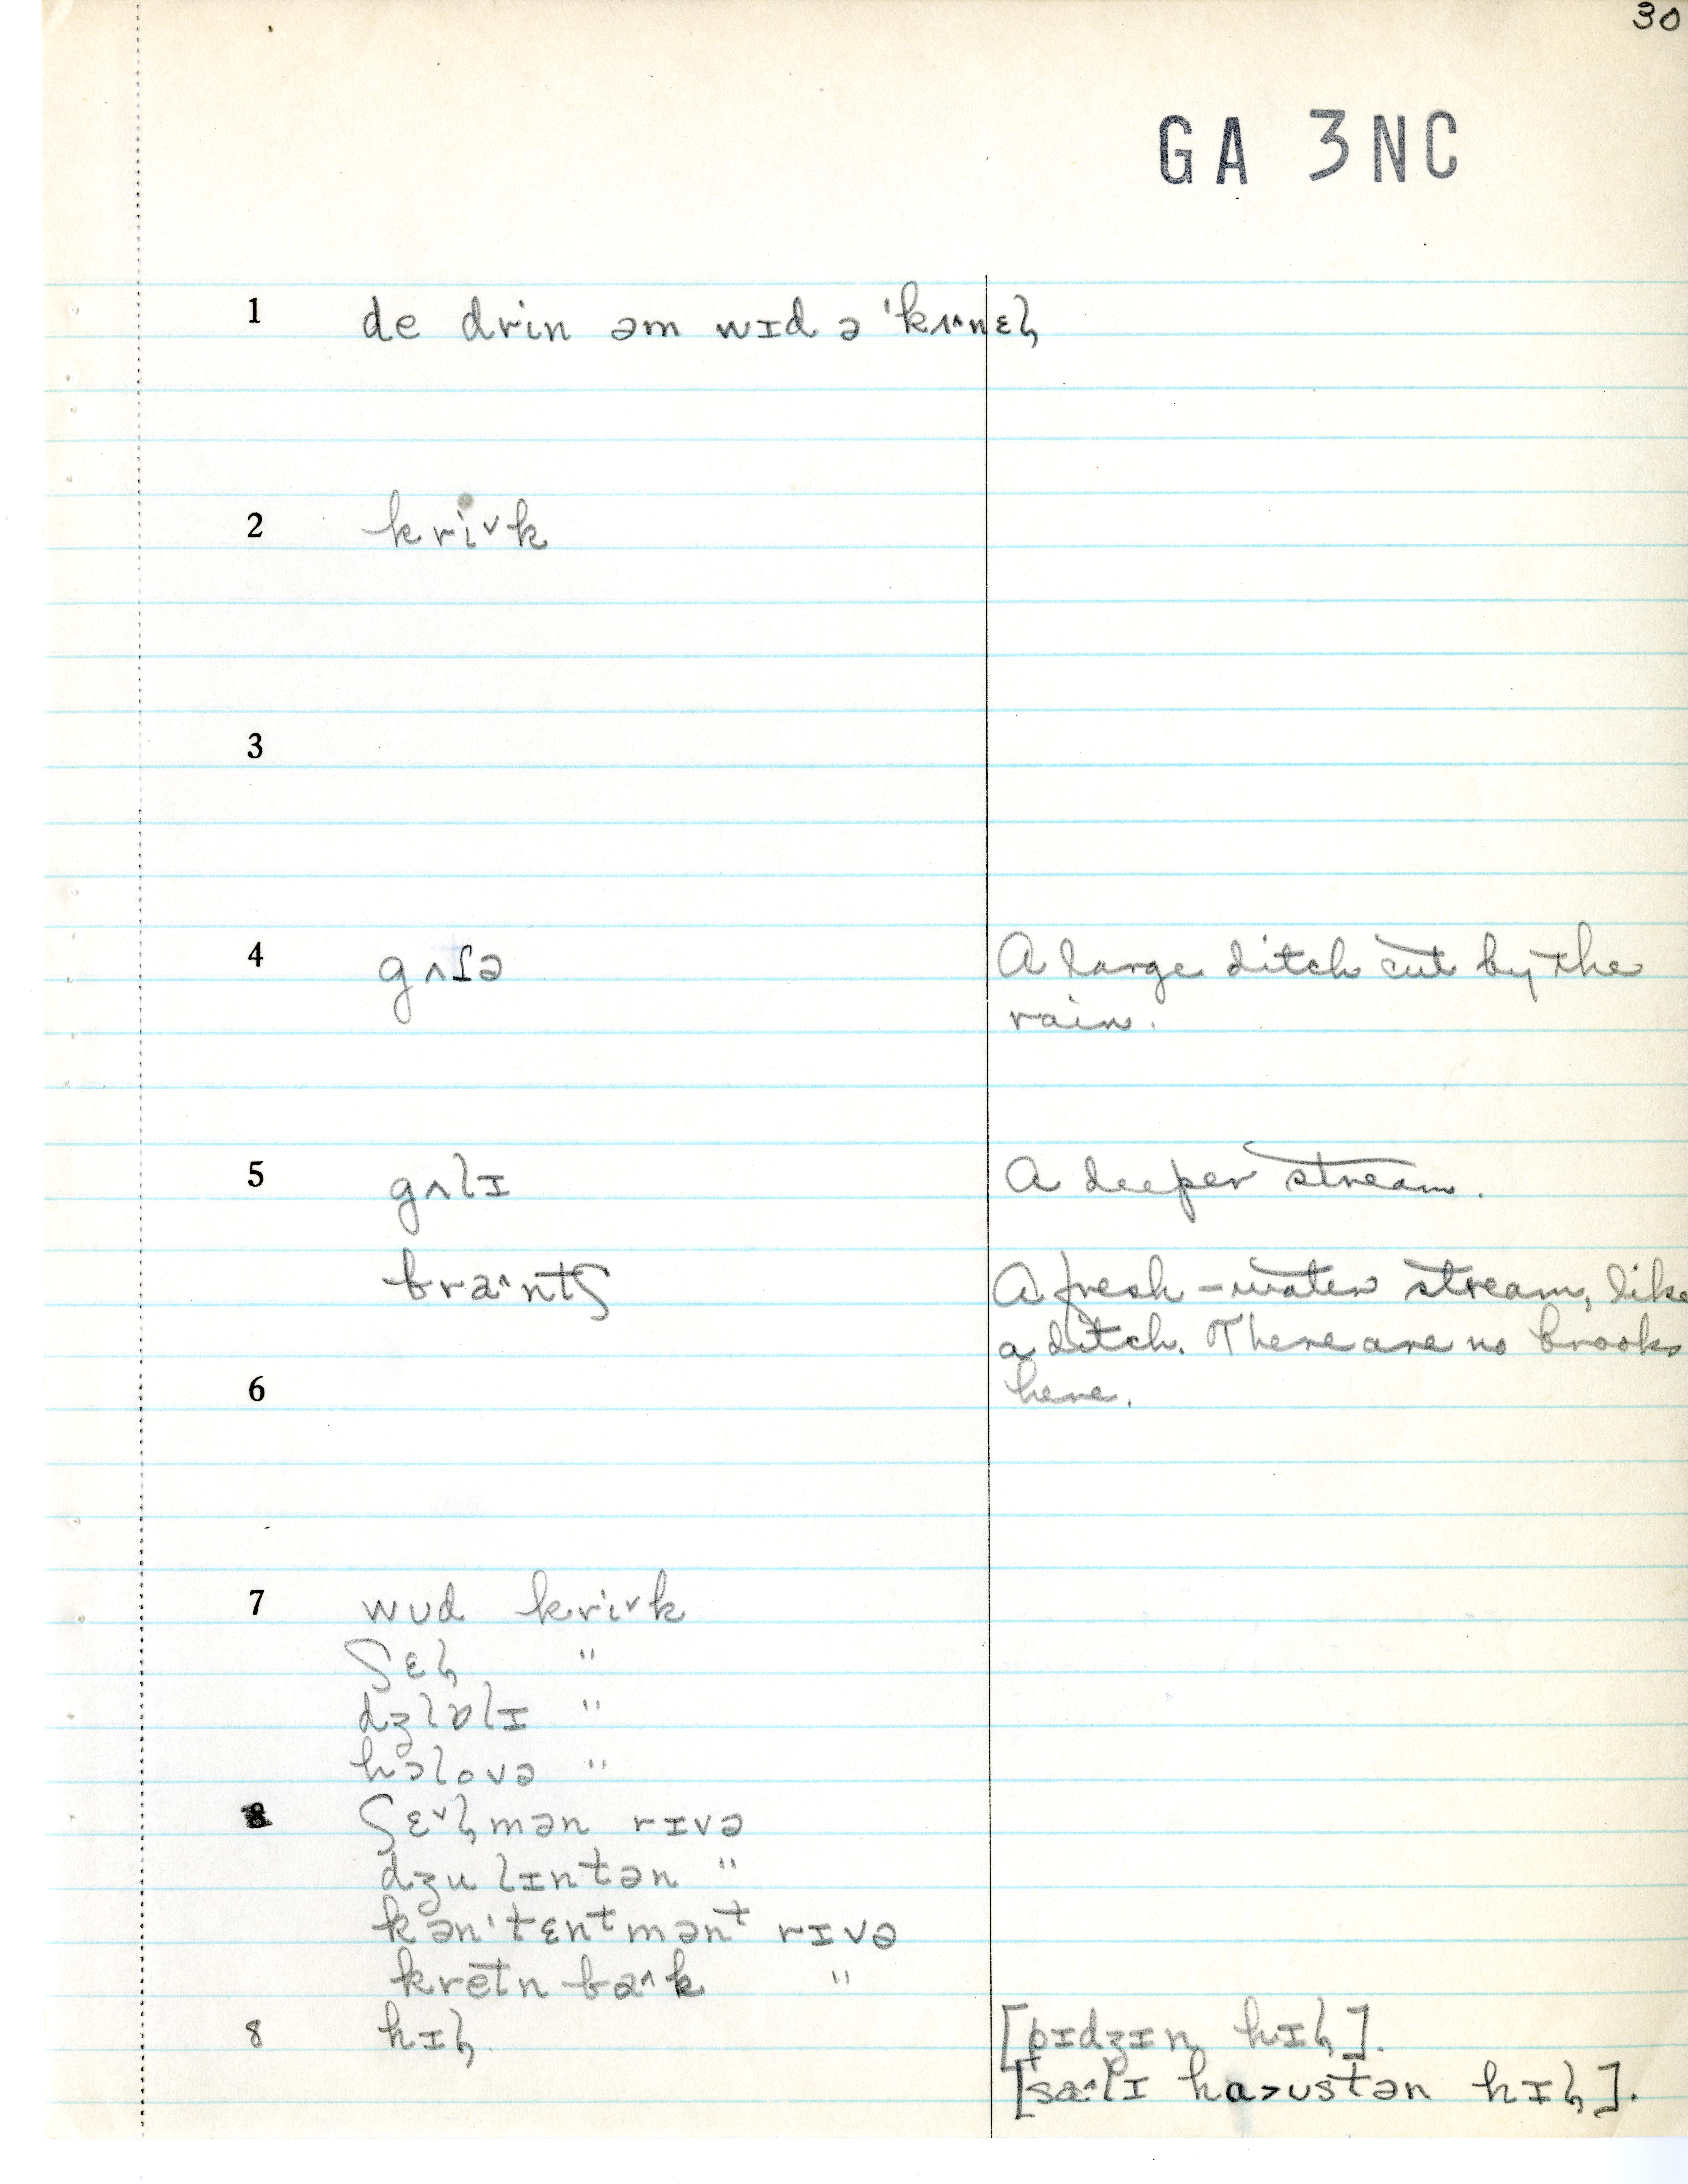 30
GA 3NC
1 de drin əm wɪd ə ˈkʌ^nɛɫ
2 kri˅k
3
4 gʌʃə A large ditch cut by the
rain.
5 gʌlɪ A deeper stream.
bra^ntʃ A fresh-water stream, like
a ditch. There are no brooks
6 here.
7 wʊd kri˅k
ʃɛɫ "
dʒlɒlɪ "
hɔlovə "
8 ʃɛ˅ɫmən rɪvə
dʒulɪntən "
kənˈtɛntmənt rɪvə
kretn ba^k "
8 hɪɫ [pɪdʒɪn hɪɫ].
[sa^lɪ ha>ʊstən hɪɫ].